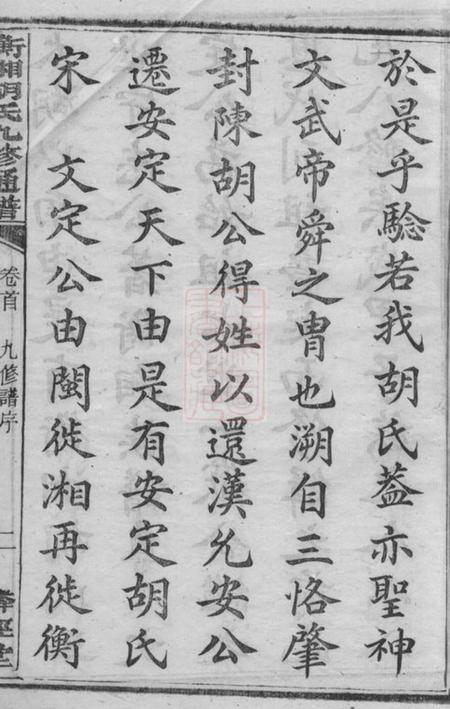 於是乎驗若我胡氏葢亦聖神
文武帝舜之冑也溯自三恪肇
封陳胡公得姓以還漢允安公
遷安定天下由是有安定胡氏
宋　文定公由閩徙湘再徙衡
衡湘胡氏九修通譜
卷首　九修譜序
二